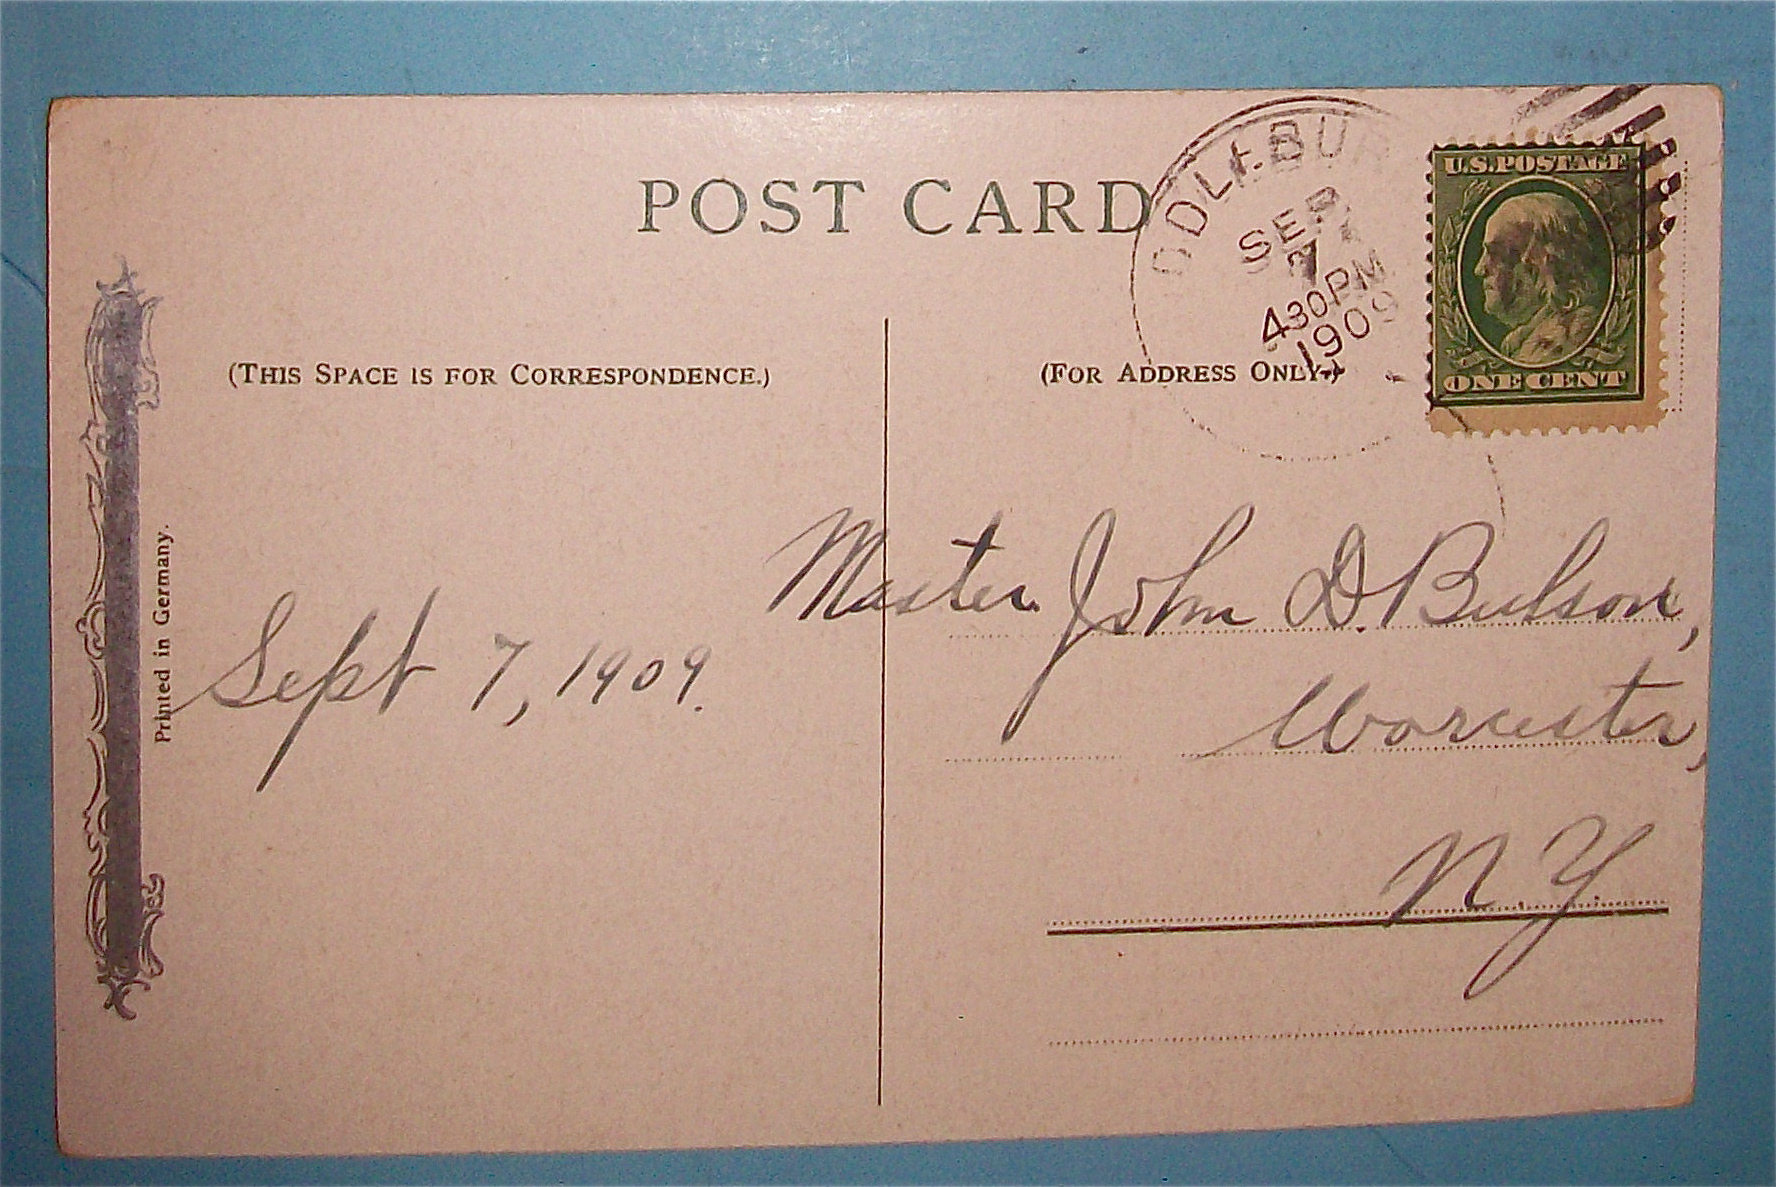 POST CARD
DDLEBUR
SEP
7
430PM
1909
U.S.POSTAGE
ONE CENT
(THIS SPACE IS FOR CORRESPONDENCE.)
(FOR ADDRESS ONLY.)
Printed in Germany.
Sept 7, 1909.
Master John D. Bulson,
Worcester,
N.Y.